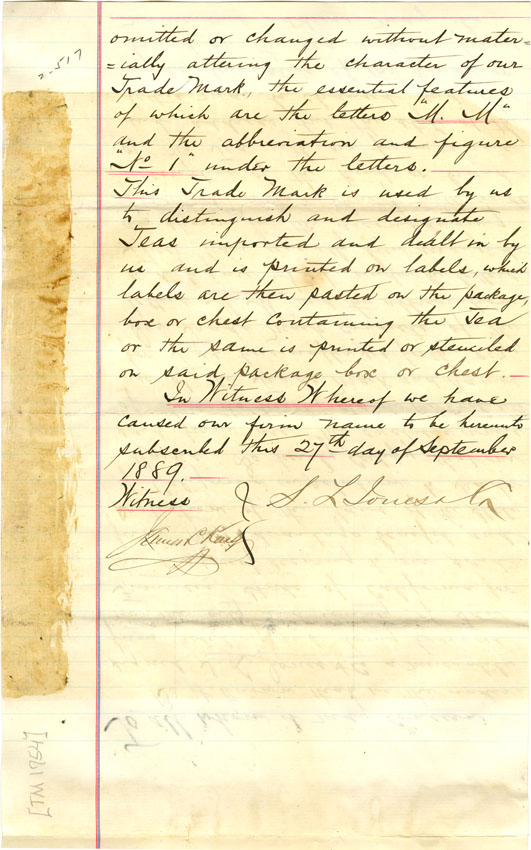 2517
omitted or changed without mater=
=ially altering the character of our
Trade Mark, the essential features
of which are the letters "M. M"
and the abbreviation and figure
"No 1" under the letters.
This Trade Mark is used by us
to distinguish and designate
Teas imported and dealt in by
us and is printed on labels, which
labels are then pasted on the package,
box or chest containing the Tea
or the same is printed or stenciled
on said package box or chest.
In Witness Whereof we have
caused our firm name to be hereunto
subscribed this 27th day of September
1889.
Witness } S. L Jones & Co
James
[TM 1754]